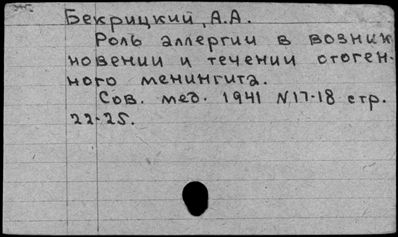 Бекрицкий, А.А.
Роль аллергии в возник
новении и течении отоген-
ного менингита.
Сов. мед. 1941 N17-18 стр.
22-25.